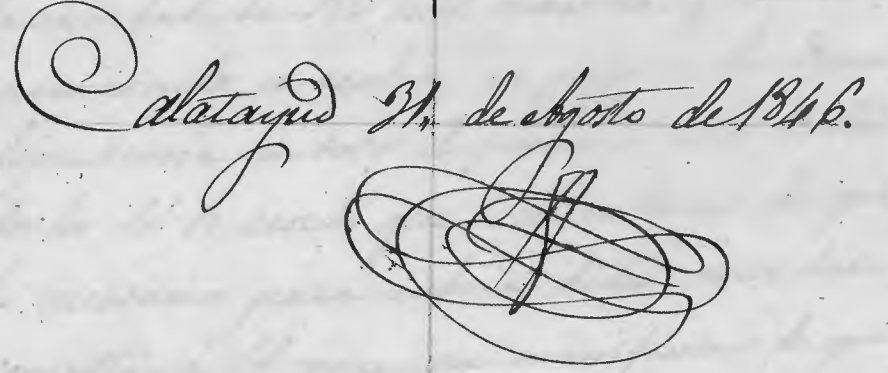 Calatayud 31. de Agosto de 1846.